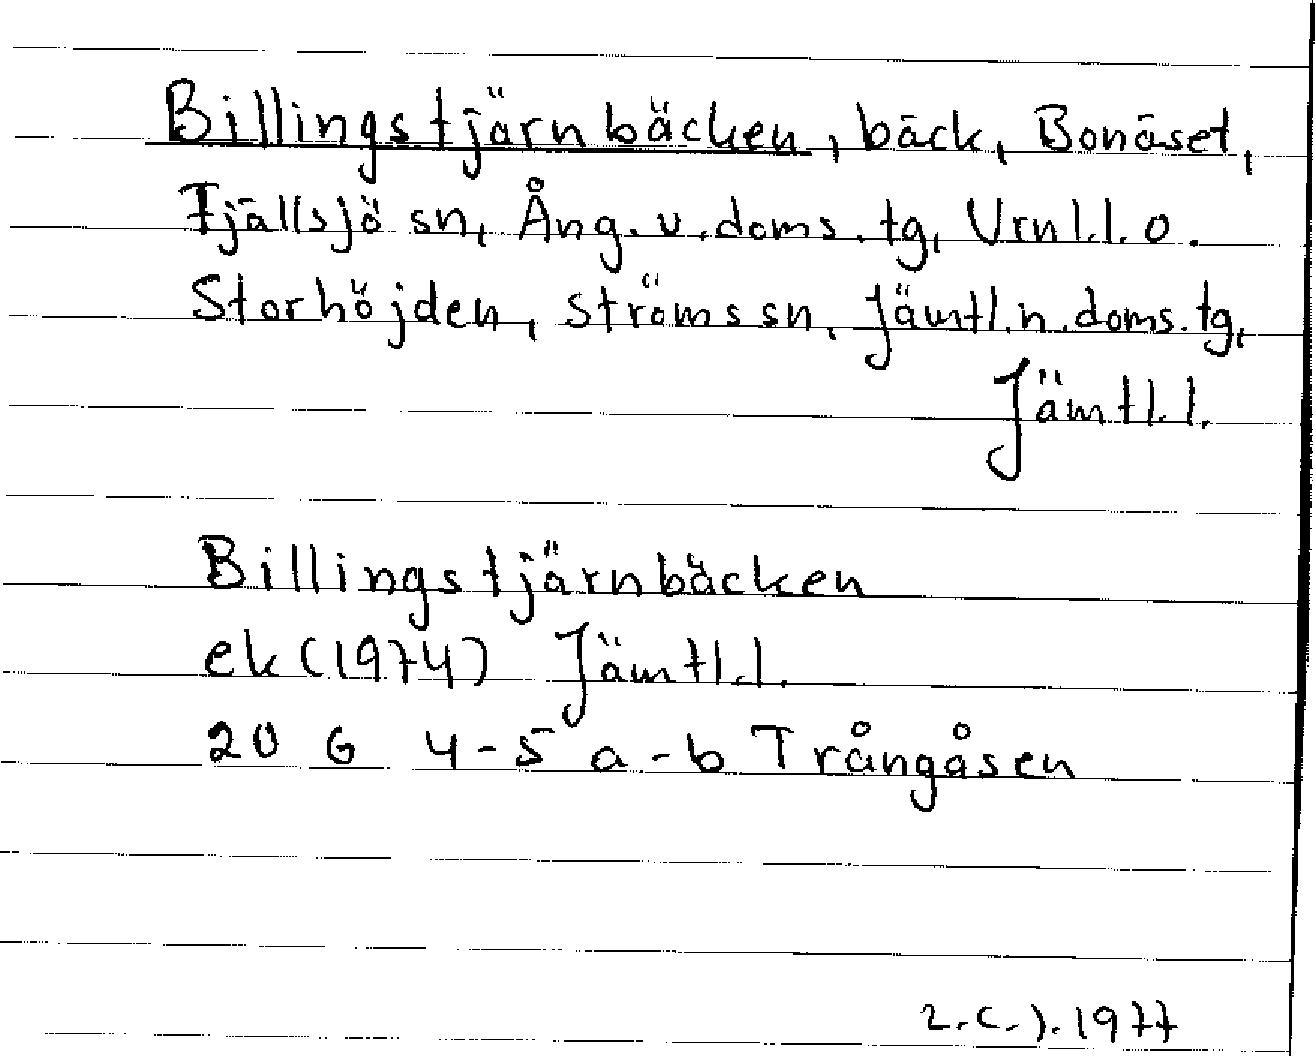 Billingstjärnbäcken, bäck, Bonäset,
Fjällsjö sn, Ång.v.doms.tg, Vrnl.l. o.
Storhöjden, Ströms sn, Jämtl.n.doms.tg,
Jämtl.l.
Billingstjärnbäcken
ek (1974) Jämtl.l.
20 G 4-5 a-b Trångåsen
1977